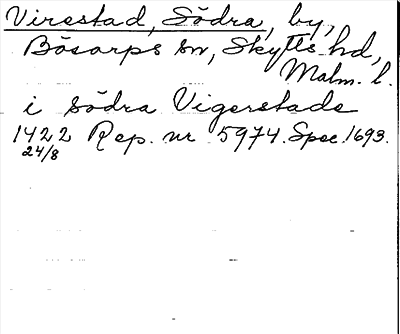 Virestad, Södra, by,
Bösarps sn, Skytts hd,
Malm. l.
i södra Vigerstade
1422 Rep. nr 5974. Spec. 1693.
24/8